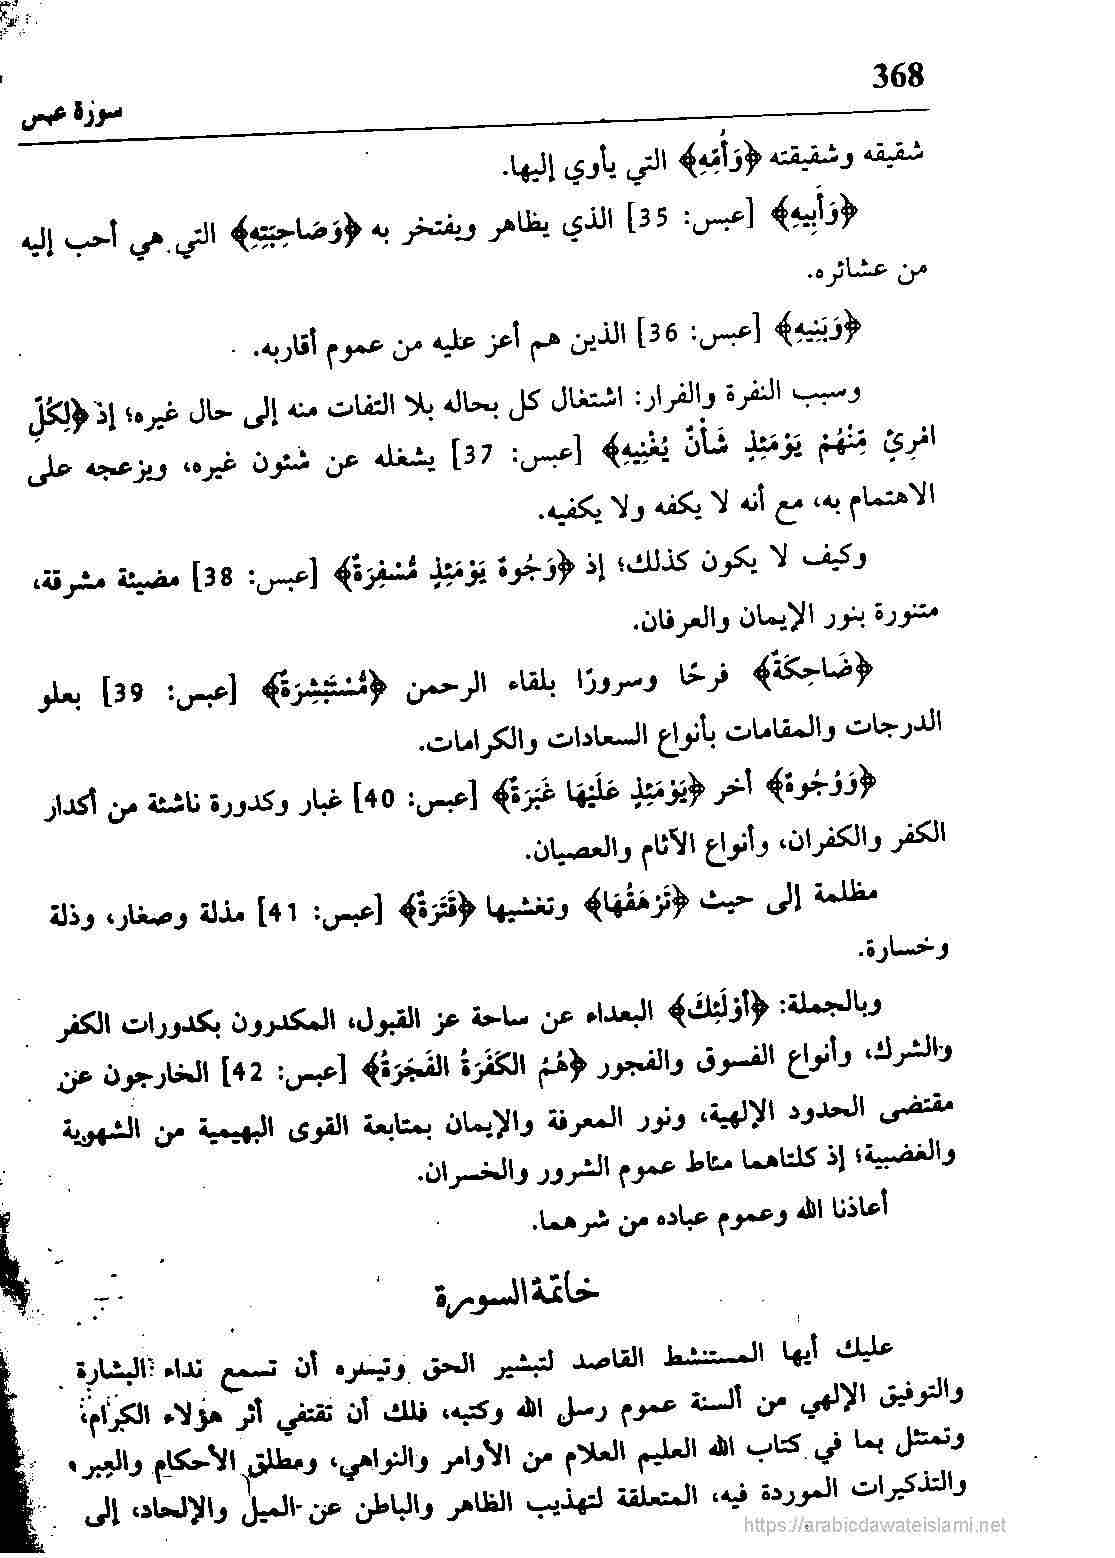 368
سورة عبس
شقيقه وشقيقته ﴿وَأُمِّهِ﴾ التي يأوي إليها.
﴿وَأَبِيهِ﴾ [عبس: 35] الذي يظاهر ويفتخر به ﴿وَصَاحِبَتِهِ﴾ التي هي أحب إليه
من عشائره.
﴿وَبَنِيهِ﴾ [عبس: 36] الذين هم أعز عليه من عموم أقاربه.
وسبب النفرة والفرار: اشتغال كل بحاله بلا التفات منه إلى حال غيره؛ إذ ﴿لِكُلِّ
امْرِئٍ مِّنْهُمْ يَوْمَئِذٍ شَأْنٌ يُغْنِيهِ﴾ [عبس: 37] يشغله عن شئون غيره، ويزعجه على
الاهتمام به، مع أنه لا يكفه ولا يكفيه.
وكيف لا يكون كذلك؛ إذ ﴿وَجُوهٌ يَوْمَئِذٍ مُّسْفِرَةٌ﴾ [عبس: 38] مضيئة مشرقة،
متنورة بنور الإيمان والعرفان.
﴿ضَاحِكَةٌ﴾ فرحًا وسرورًا بلقاء الرحمن ﴿مُّسْتَبْشِرَةٌ﴾ [عبس: 39] بعلو
الدرجات والمقامات بأنواع السعادات والكرامات.
﴿وَوُجُوهٌ﴾ أخر ﴿يَوْمَئِذٍ عَلَيْهَا غَبَرَةٌ﴾ [عبس: 40] غبار وكدورة ناشئة من أكدار
الكفر والكفران، وأنواع الآثام والعصيان.
مظلمة إلى حيث ﴿تَرْهَقُهَا﴾ وتغشيها ﴿قَتَرَةٌ﴾ [عبس: 41] مذلة وصغار، وذلة
وخسارة.
وبالجملة: ﴿أُوْلَئِكَ﴾ البعداء عن ساحة عز القبول، المكدرون بكدورات الكفر
والشرك، وأنواع الفسوق والفجور ﴿هُمُ الكَفَرَةُ الفَجَرَةُ﴾ [عبس: 42] الخارجون عن
مقتضى الحدود الإلهية، ونور المعرفة والإيمان بمتابعة القوى البهيمية من الشهوية
والغضبية؛ إذ كلتاهما مناط عموم الشرور والخسران.
أعاذنا الله وعموم عباده من شرهما.
خاتمة السورة
عليك أيها المستنشط القاصد لتبشير الحق وتيسره أن تسمع نداء البشارة
والتوفيق الإلهي من ألسنة عموم رسل الله وكتبه، فلك أن تقتفي أثر هؤلاء الكرام،
وتمتثل بما في كتاب الله العليم العلام من الأوامر والنواهي، ومطلق الأحكام والعبر
والتذكيرات الموردة فيه، المتعلقة لتهذيب الظاهر والباطن عن الميل والإلحاد، إلى
https://arabicdawateislami.net